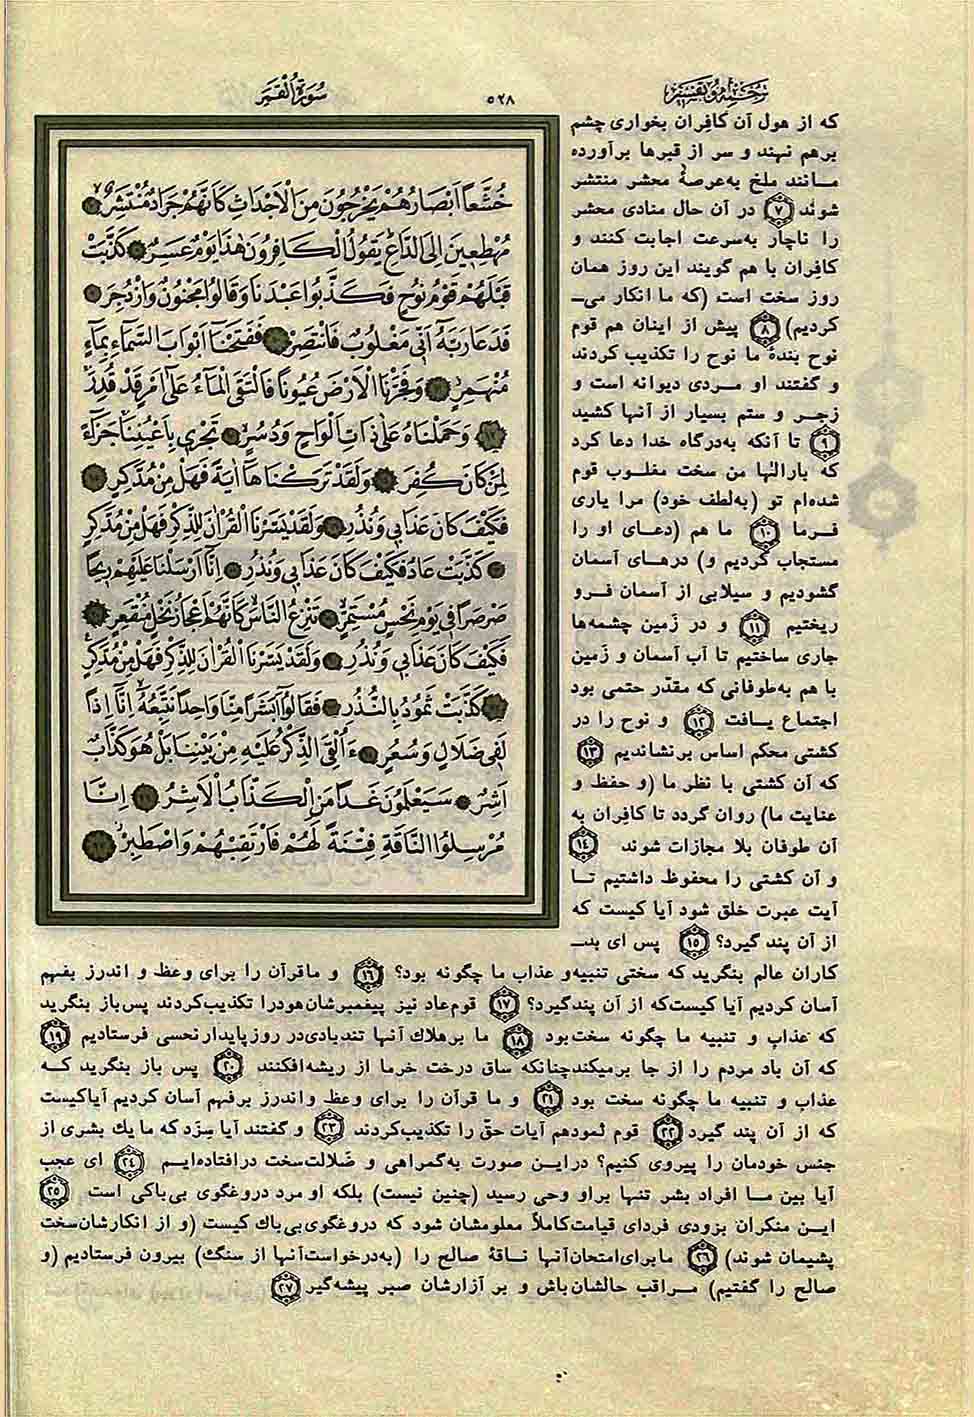 ترجمه و تفسیر
۵۲۸
سُورَةُ الْقَمَر
خُشَّعاً اَبْصَارُهُمْ يَخْرُجُونَ مِنَ الْاَجْدَاثِ كَاَنَّهُمْ جَرَادٌ مُنْتَشِرٌ ۷
مُهْطِعِينَ اِلَى الدَّاعِ يَقُولُ الْكَافِرُونَ هٰذَا يَوْمٌ عَسِرٌ كَذَّبَتْ
قَبْلَهُمْ قَوْمُ نُوحٍ فَكَذَّبُوا عَبْدَنَا وَقَالُوا مَجْنُونٌ وَازْدُجِرَ
فَدَعَا رَبَّهُ اَنّٖي مَغْلُوبٌ فَانْتَصِرْ فَفَتَحْنَا اَبْوَابَ السَّمَاءِ بِمَاءٍ
مُنْهَمِرٍ وَفَجَّرْنَا الْاَرْضَ عُيُوناً فَالْتَقَى الْمَاءُ عَلٰى اَمْرٍ قَدْ قُدِرَ
وَحَمَلْنَاهُ عَلٰى ذَاتِ اَلْوَاحٍ وَدُسُرٍ تَجْرِي بِاَعْيُنِنَا جَزَاءً
لِمَنْ كَانَ كُفِرَ وَلَقَدْ تَرَكْنَاهَا اٰيَةً فَهَلْ مِنْ مُدَّكِرٍ
فَكَيْفَ كَانَ عَذَابِي وَنُذُرِ وَلَقَدْ يَسَّرْنَا الْقُرْاٰنَ لِلذِّكْرِ فَهَلْ مِنْ مُدَّكِرٍ
كَذَّبَتْ عَادٌ فَكَيْفَ كَانَ عَذَابِي وَنُذُرِ اِنَّا اَرْسَلْنَا عَلَيْهِمْ رِيحاً
صَرْصَراً فِي يَوْمِ نَحْسٍ مُسْتَمِرٍّ تَنْزِعُ النَّاسَ كَاَنَّهُمْ اَعْجَازُ نَخْلٍ مُنْقَعِرٍ
فَكَيْفَ كَانَ عَذَابِي وَنُذُرِ وَلَقَدْ يَسَّرْنَا الْقُرْاٰنَ لِلذِّكْرِ فَهَلْ مِنْ مُدَّكِرٍ
كَذَّبَتْ ثَمُودُ بِالنُّذُرِ فَقَالُوا اَبَشَراً مِنَّا وَاحِداً نَتَّبِعُهُ اِنَّا اِذاً
لَفِي ضَلَالٍ وَسُعُرٍ ءَاُلْقِيَ الذِّكْرُ عَلَيْهِ مِنْ بَيْنِنَا بَلْ هُوَ كَذَّابٌ
اَشِرٌ سَيَعْلَمُونَ غَداً مَنِ الْكَذَّابُ الْاَشِرُ اِنَّا
مُرْسِلُوا النَّاقَةِ فِتْنَةً لَهُمْ فَارْتَقِبْهُمْ وَاصْطَبِرْ
که از هول آن کافِران بخواری چشم
برهم نهند و سر از قبرها برآورده
مانند ملخ به‌عرصهٔ محشر منتشر
شوند ۷ در آن حال منادی محشر
را ناچار به‌سرعت اجابت کنند و
کافران با هم گویند این روز همان
روز سخت است (که ما انکار می‌ـ
کردیم) ۸ پیش از اینان هم قوم
نوح بندهٔ ما نوح را تکذیب کردند
و گفتند او مردی دیوانه است و
زجر و ستم بسیار از آنها کشید
۹ تا آنکه به‌درگاه خدا دعا کرد
که بارالٰها من سخت مغلوب قوم
شده‌ام تو (به‌لطف خود) مرا یاری
فرما ۱۰ ما هم (دعای او را
مستجاب کردیم و) درهای آسمان
گشودیم و سیلابی از آسمان فرو
ریختیم ۱۱ و در زَمین چشمه‌ها
جاری ساختیم تا آب آسمان و زَمین
با هم به‌طوفانی که مقدّر حتمی بود
اجتماع یافت ۱۲ و نوح را در
کشتی محکم اساس برنشاندیم ۱۳
که آن کشتی با نظر ما (و حفظ و
عنایت ما) روان گردد تا کافِران به
آن طوفان بلا مجازات شوند ۱۴
و آن کشتی را محفوظ داشتیم تا
آیت عبرت خلق شود آیا کیست که
از آن پند گیرد؟ ۱۵ پس ای بدـ
کاران عالم بنگرید که سختی تنبیه‌و عذاب ما چگونه بود؟ ۱۶ و ماقرآن را برای وعظ و اندرز بفهم
آسان کردیم آیا کیست‌که از آن پندگیرد؟ ۱۷ قوم‌عاد نیز پیغمبرشان‌هودرا تکذیب‌کردند پس‌باز بنگرید
که عذاب و تنبیه ما چگونه سخت‌بود ۱۸ ما برهلاك آنها تندبادی‌در روزپایدارنحسی فرستادیم ۱۹
که آن باد مردم را از جا برمیکندچنانکه ساق درخت خرما از ریشه‌افکنند ۲۰ پس باز بنگرید که
عذاب و تنبیه ما چگونه سخت بود ۲۱ و ما قرآن را برای وعظ واندرز برفهم آسان کردیم آیاکیست
که از آن پند گیرد ۲۲ قوم ثمودهم آیات حقّ را تکذیب‌کردند ۲۳ و گفتند آیا سِزَد که ما یك بشری از
جنس خودمان را پیروی کنیم؟ دراین صورت به‌گمراهی و ضَلالت‌سخت درافتاده‌ایم ۲۴ ای عجب
آیا بین ما افراد بشر تنها براو وحی رسید (چنین نیست) بلکه او مرد دروغگوی بی‌باکی است ۲۵
این منکران بزودی فردای قیامت‌کاملاً معلومشان شود که دروغگوی‌بی‌باك کیست (و از انکارشان‌سخت
پشیمان شوند) ۲۶ مابرای‌امتحان‌آنها ناقهٔ صالح را (به‌درخواست‌آنها از سنگ) بیرون فرستادیم (و
صالح را گفتیم) مراقب حالشان‌باش و بر آزارشان صبر پیشه‌گیر ۲۷